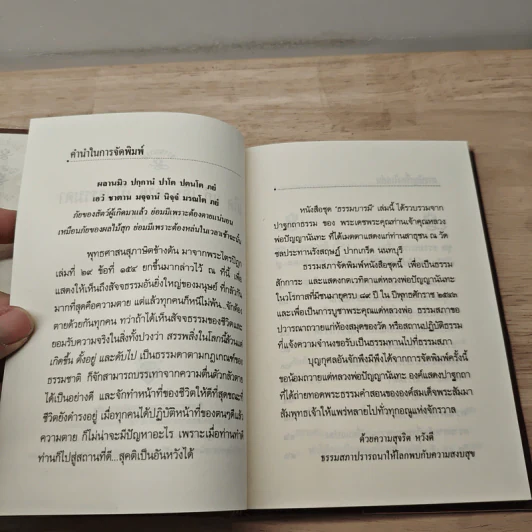 คำนำในการจัดพิมพ์
ผลานมิว ปกฺกานํ ปาโต ปตนโต ภยํ
เอวํ ชาตาน มจฺจานํ นิจฺจํ มรณโต ภยํ
ภัยของสัตว์ผู้เกิดมาแล้ว ย่อมมีเพราะต้องตายแน่นอน
เหมือนภัยของผลไม้สุก ย่อมมีเพราะต้องหล่นในเวลาเช้าฉะนั้น
พุทธศาสนสุภาษิตข้างต้น มาจากพระไตรปิฎก
เล่มที่ ๒๙ ข้อที่ ๑๕๔ ยกขึ้นมากล่าวไว้ ณ ที่นี้ เพื่อ
แสดงให้เห็นถึงสัจธรรมอันยิ่งใหญ่ของมนุษย์ ที่กลัวกัน
มากที่สุดคือความตาย แต่แล้วทุกคนก็หนีไม่พ้น..จักต้อง
ตายด้วยกันทุกคน ทว่าถ้าได้เห็นสัจธรรมของชีวิตและ
ยอมรับความจริงในสิ่งทั้งปวงว่า สรรพสิ่งในโลกนี้ล้วนแต่
เกิดขึ้น ตั้งอยู่ และดับไป เป็นธรรมดาตามกฎเกณฑ์ของ
ธรรมชาติ ก็จักสามารถบรรเทาจากความตื่นตัวกลัวตาย
ได้เป็นอย่างดี และจักทำหน้าที่ของชีวิตให้ดีที่สุดขณะที่
ชีวิตยังดำรงอยู่ เมื่อทุกคนได้ปฏิบัติหน้าที่ของตนๆดีแล้ว
ความตาย ก็ไม่น่าจะมีปัญหาอะไร เพราะเมื่อท่านทำดี
ท่านก็ไปสู่สถานที่ดี...สุคติเป็นอันหวังได้
หนังสือชุด "ธรรมบารมี" เล่มนี้ ได้รวบรวมจาก
ปาฐกถาธรรม ของ พระเดชพระคุณท่านเจ้าคุณหลวง
พ่อปัญญานันทะ ที่ได้เมตตาแสดงแก่ท่านสาธุชน ณ วัด
ชลประทานรังสฤษฎ์ ปากเกร็ด นนทบุรี
ธรรมสภาจัดพิมพ์หนังสือชุดนี้ เพื่อเป็นธรรม
สักการะ และแสดงกตเวทิตาแด่หลวงพ่อปัญญานันทะ
ในวโรกาสที่มีชนมายุครบ ๘๙ ปี ใน ปีพุทธศักราช ๒๕๔๓
และเพื่อเป็นการบูชาพระคุณแด่หลวงพ่อ ธรรมสภาขอ
ปวารณาถวายแก่ห้องสมุดของวัด หรือสถานปฏิบัติธรรม
ที่แจ้งความจำนงขอรับเป็นธรรมทานไปที่ธรรมสภา
บุญกุศลอันจักพึงมีพึงได้จากการจัดพิมพ์ครั้งนี้
ขอน้อมถวายแด่หลวงพ่อปัญญานันทะ องค์แสดงปาฐกถา
ที่ได้ถ่ายทอดพระธรรมคำสอนขององค์สมเด็จพระสัมมา
สัมพุทธเจ้าให้แพร่หลายไปทั่วทุกอณูแห่งจักรวาล
ด้วยความสุจริต หวังดี
ธรรมสภาปรารถนาให้โลกพบกับความสงบสุข